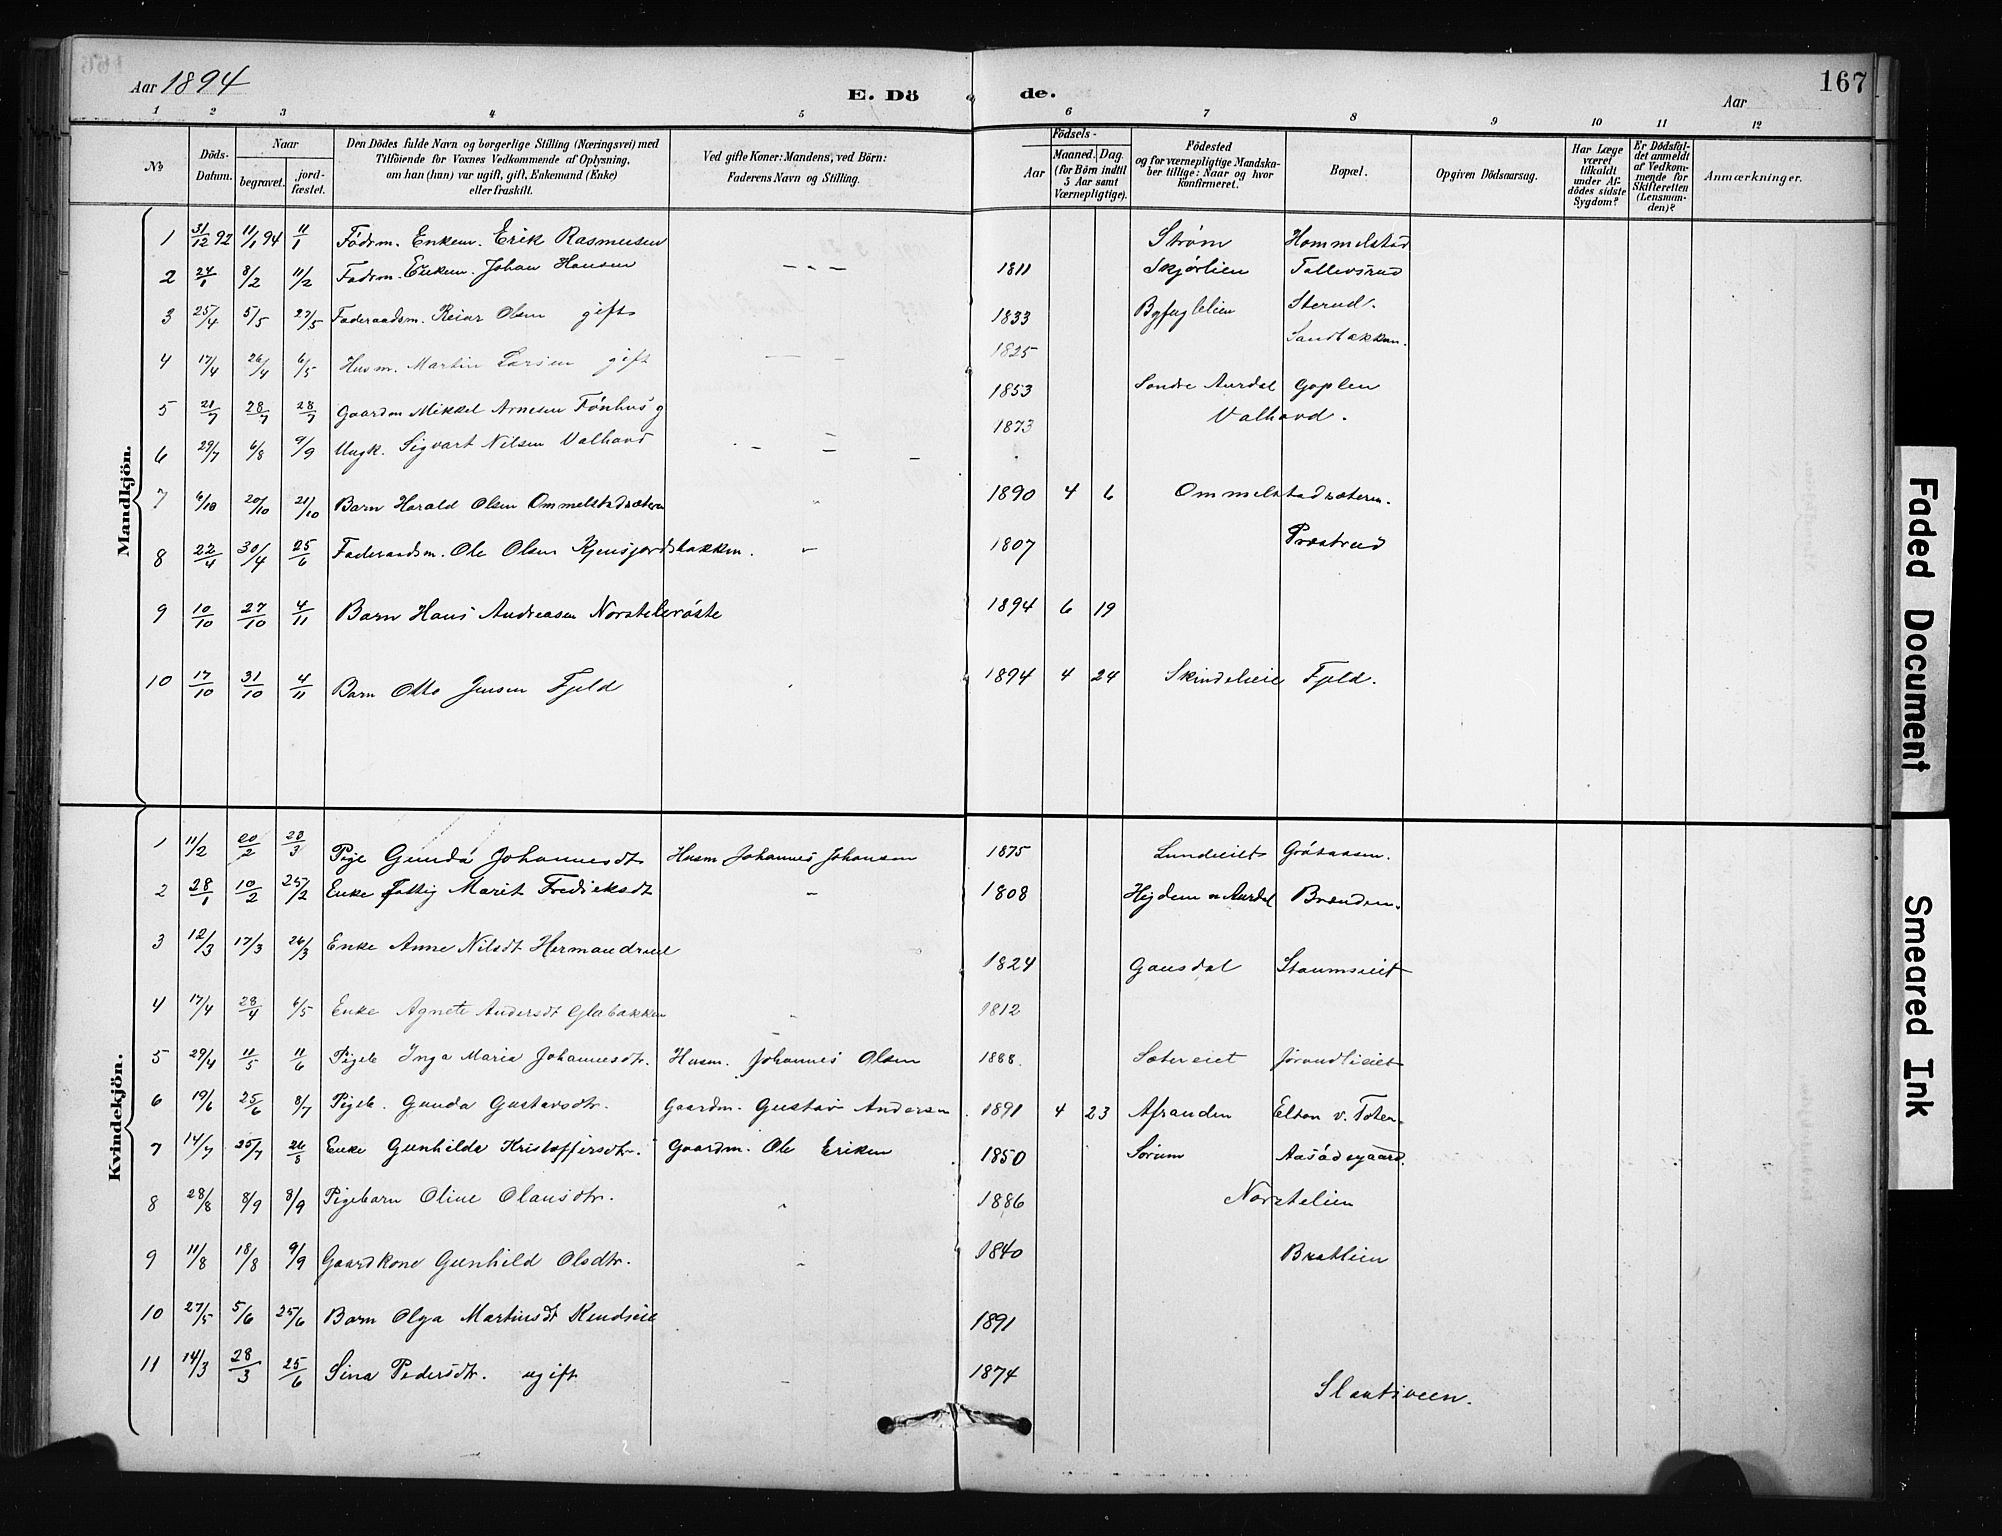 Aar 1894 E. Dö de. Aar 167
1 2 3 4 5 6 7 8 9 10 11 12
No. Döds-Datum. Naar begravet. jordfæstet. Den Dödes fulde Navn og borgerlige Stilling (Næringsvei) med Tilföiende for Voxnes Vedkommende af Oplysning, om han (hun) var ugift, gift, Enkemand (Enke) eller fraskilt. Ved gifte Koner: Mandens, ved Börn: Faderens Navn og Stilling. Födsels- Aar Maaned. Dag. (for Börn indtil 5 Aar samt Værnepligtige). Födested og for værnepligtige Mandskaber tillige: Naar og hvor konfirmeret. Bopæl. Opgiven Dödsaarsag. Har Læge været tilkaldt under Afdödes sidste Sygdom? Er Dödsfaldet anmeldt af Vedkommende for Skifteretten (Lensmanden)? Anmærkninger.
Mandkjön.
1 31/12 92 11/1 94 11/1 Födrm. Enkem. Erik Rasmusen Strøm Hommelstad
2 24/1 8/2 11/2 Fodrm. Enkem. Johan Hansen - - - 1811 Skjørlien Tollevsrud
3 25/4 5/5 27/5 Foderaadsm. Reiar Olsen gift 1833 Byfuglelien Sterud.
4 17/4 26/4 6/5 Husm. Martin Larsen gift 1825 Sandbakken.
5 21/7 28/7 28/7 Gaardm Mikkel Arnesen Fönhus g 1853 Søndre Aurdal Goplen
6 29/7 6/8 9/9 Ungk. Sigvart Nilsen Valhovd - - - 1873 Valhovd.
7 6/10 20/10 21/10 Barn Harald Olsen Ommelstadsæteren 1890 4 6 Ommelstadsæteren.
8 22/4 30/4 25/6 Foderaadsm. Ole Olsen Kjensjordsbakken. 1807 Præstrud
9 10/10 27/10 4/11 Barn Hans Andreasen Norstelerøste 1894 6 19
10 17/10 31/10 4/11 Barn Otto Jensen Fjeld 1894 4 24 Skindelieie Fjeld.
Kvindekjön.
1 11/2 20/2 28/3 Pige Gunda Johannesdt Husm Johannes Johansen 1875 Lundeiet Gråtaasen.
2 28/1 10/2 25/2 Enke Fattig Marit Frediksdt - 1808 Hejdem n Aurdal Brænden.
3 12/3 17/3 26/3 Enke Anne Nilsdt Hermandrud 1824 Gausdal Staumseiet
4 17/4 28/4 6/5 Enke Agnete Andersdt Glabakken 1812
5 29/4 11/5 11/6 Pigeb Inga Maria Johannesdtr. Husm. Johannes Olsen 1888. Sætereiet Jörandlieiet
6 19/6 25/6 8/7 Pigeb. Gunda Gustavsdtr. Gaardm. Gustav Andersen 1891 4 23 Afranden Elton v. Toten
7 14/7 25/7 26/8 Enke Gunhilde Kristoffersdtr. Gaardm. Ole Eriken 1850 Sörum Aasödegaard.
8 28/8 8/9 8/9 Pigebarn Oline Olausdtr. 1886 Norstelien
9 11/8 18/8 9/9 Gaardkone Gunhild Olsdtr. 1840 Bratlien
10 27/5 5/6 25/6 Barn Olga Martinsdt Rendseie 1891
11 14/3 28/3 25/6 Sina Pedersdtr. ugift - 1874 Slaatsveen.
Faded Document
Smeared Ink